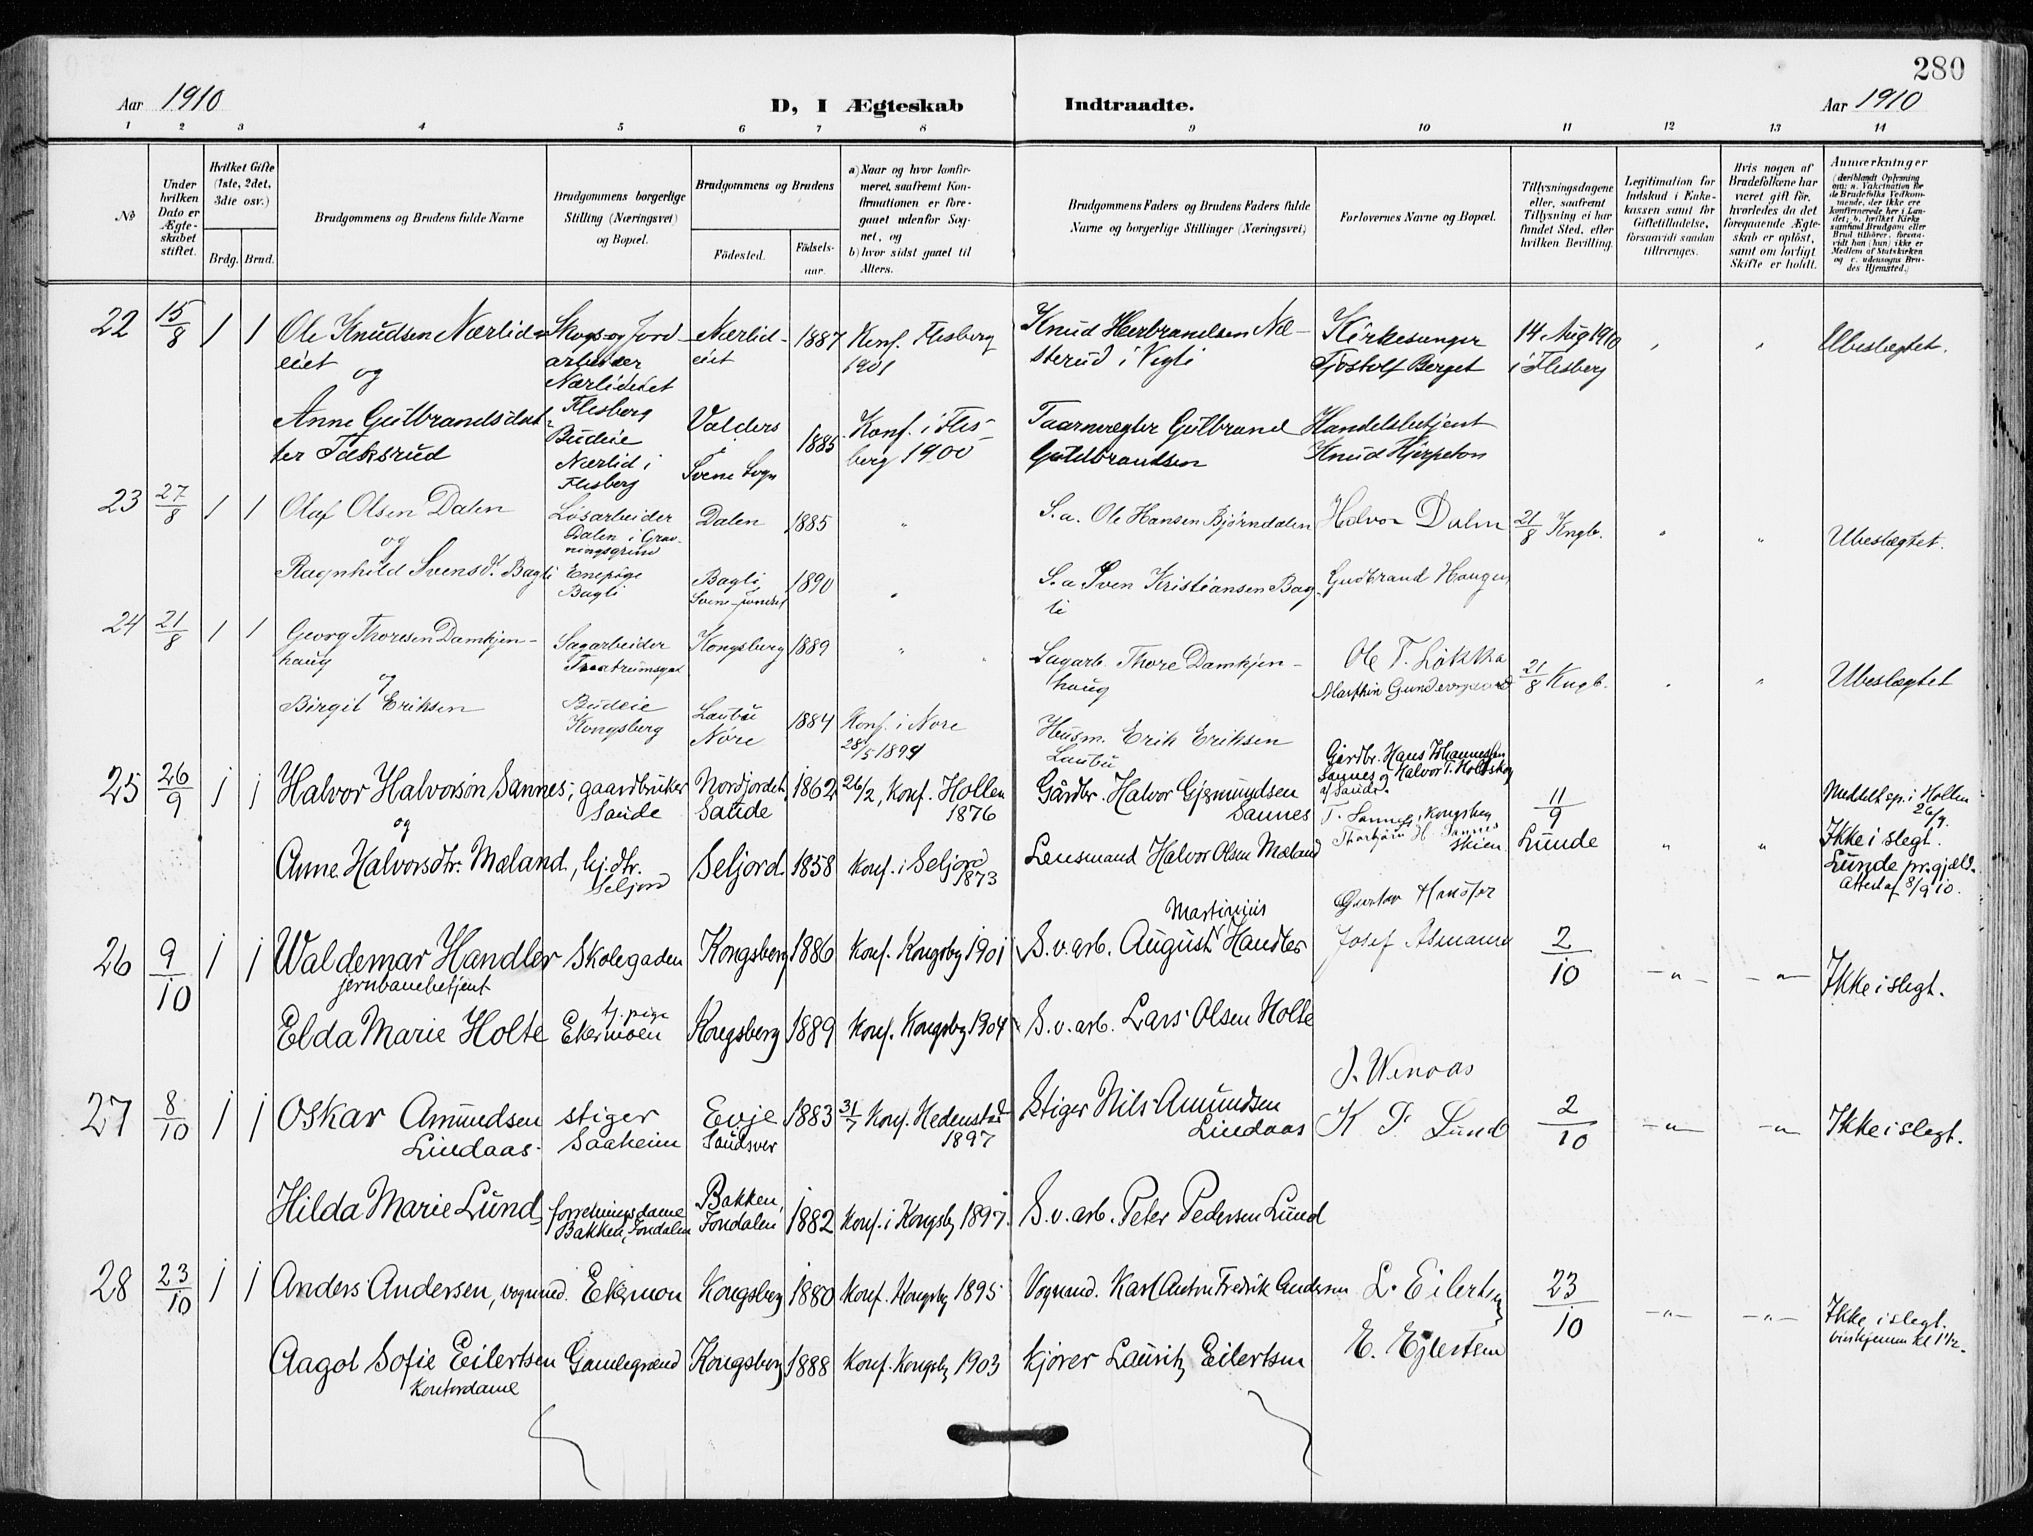 280
Aar 1910
D, I Ægteskab Indtraadte.
Aar 1910
1 2 3 4 5 6 7 8 9 10 11 12 13 14
No
Under hvilken Dato er Ægteskabet stiftet.
Hvilket Gifte (1ste, 2det, 3die osv.)
Brdg. Brud.
Brudgommens og Brudens fulde Navne
Brudgommens borgerlige Stilling (Næringsvei) og Bopæl.
Brudgommens og Brudens
Fødested.
Fødselsaar.
a) Naar og hvor konfirmeret, saafremt Konfirmationen er foregaaet udenfor Sognet, og
b) hvor sidst gaaet til Alters.
Brudgommens Faders og Brudens Faders fulde Navne og borgerlige Stillinger (Næringsvei)
Forlovernes Navne og Bopæl.
Tillysningsdagene eller, saafremt Tillysning ei har fundet Sted, efter hvilken Bevilling.
Legitimation for Indskud i Enkekassen samt for Giftetilladelse, forsaavidt saadan tiltrænges.
Hvis nogen af Brudefolkene har været gift før, hvorledes da det foregaaende Ægteskab er opløst, samt om lovligt Skifte er holdt.
Anmærkninger
(deriblandt Oplysning om: a. Vakcination for de Brudefolks Vedkommende, der ikke ere konfirmerede her i Landet; b. hvilket Kirkesamfund Brudgom eller Brud tilhører, forsaavidt han (hun) ikke er Medlem af Statskirken og c. udensogns Brudes Hjemsted.)
22 15/8 1 1 Ole Knudsen Nærlideiet
og
Skogs og Jordarbeider
Nærlideiet
Flesberg
Nærlideiet
1887
Konf. Flesberg
1901
Knud Herbrandsen Næsterud i Vegli
Kirkesanger
Tjostolf Berget
14 Aug 1910
i Flesberg
Ubeslægtet.
Anne Gulbrandsdatter Taksrud
Budeie
Nærlid i
Flesberg
Valders
Svene Sogn
1885
Konf. i Flesberg 1900
Taarnvægter Gulbrand
Guldbrandsen
Handelsbetjent
Knud
23 27/8 1 1 Olaf Olsen Dalen
og
Løsarbeider
Dalen i Gravningsgrend
Dalen
1885
S. a. Ole Hansen Bjørndalen
Halvor Dalen
21/8 Kngb.
Ubeslægtet.
Ragnhild Svensd. Bagli
Enepige
Bagli
Bagli
1890
S. a Sven Kristiansen Bagli
Gudbrand Haugen
24 21/8 1 1 Georg Thoresen Damkjenhaug
og
Sagarbeider
Kongsberg
1889
Sagarb. Thore Damkjenhaug
Ole T. Løkka
21/8 Kngb.
Ubeslægtet
Birgit Eriksen
Budeie
Kongsberg
Laubu
Nore
1884
Konf. i Nore
28/5 1899
Husm. Erik Eriksen
Laubu
25 26/9 1 1 Halvor Halvorsøn Sannes, gaardbruker
og
Saude
Nordjordet
Saude
1862
26/2, Konf. Hollen
1876
Gårdbr. Halvor Gjermundsen
Sannes
Gårdbr. Hans Johannessen
Sannes og Halvor T. Holtskog
af Saude.
T. Sannes, Kongsberg
Thorbjørn H. Sannes
Skien
11/9
Lunde
Meddelt sp. i Hollen
26/9.
Ikke i slegt.
Lunde pr.gjæld.
Attest af 8/9 10.
Anne Halvorsdtr. Mæland, hj.dtr.
Seljord
Seljord
1858
Konf. i Seljord
1873
Lensmand Halvor Olsen Mæland
26 9/10 1 1 Waldemar Handler
jernbanebetjent
Skolegaden
Kongsberg
1886
Konf. Kongsbg 1901
Martinius
S. v. arb. August Handler
Gustav
Josef Asmann
2/10
Ikke i slegt.
Elda Marie Holte
tj. pige
Ekermoen
Kongsberg
1889
Konf. Kongsbg 1904
S. v. arb. Lars Olsen Holte
27 8/10 1 1 Oskar Amundsen
Lindaas
stiger
Saaheim
Evje
Sandsver
1883
31/7 Konf. Hedenstad
1897
Stiger Nils Amundsen
Lindaas
K. F. Lund
2/10
Ikke i slegt.
Hilda Marie Lund
forretningsdame
Bakken, Jondalen
Bakken,
Jondalen
1882
Konf. i Kongsbg 1897.
S. v. arb. Peter Pedersen Lund
28 23/10 1 1 Anders Andersen, vognmd.
Ekermoen
Kongsberg
1880
Konf. Kongsbg 1895
Vognmd. Karl Anton Fredrik Andersen
L. Eilertsen
23/10
Ikke i slegt.
Aagot Sofie Eilertsen
Kontordame
Gamlegrænd
Kongsberg
1888
Konf. Kongsbg 1903
kjører Lauritz Eilertsen
E. Ejlertsen